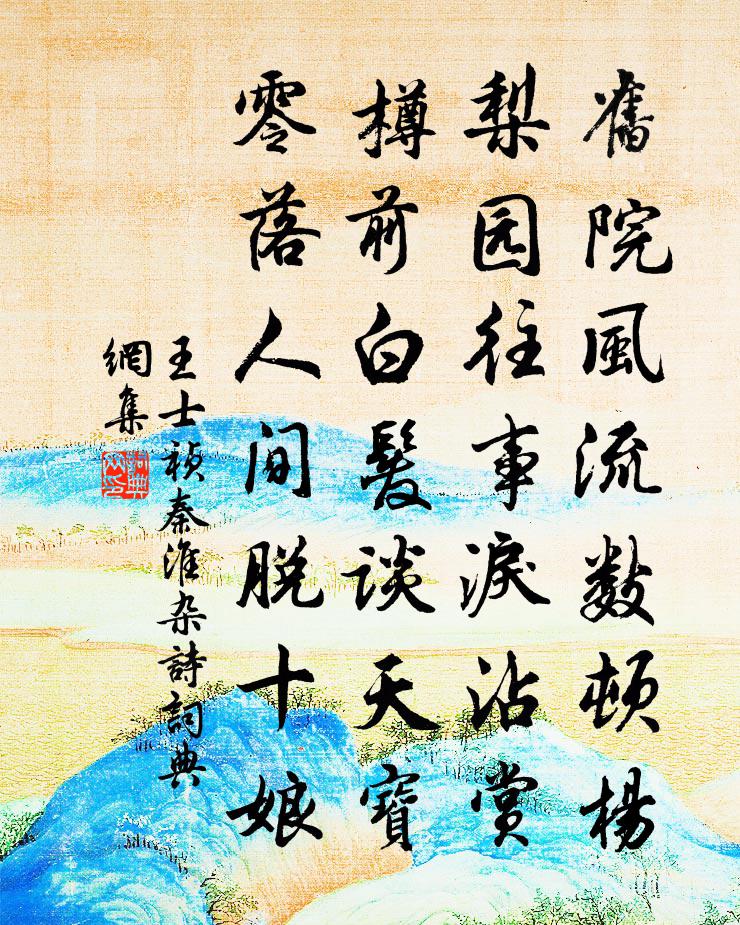 舊院風流數頓楊
梨园往事淚沾赏
樽前白髮談天寶
零落人間脱十娘
王士禎秦淮杂詩詞典
網集
詞典